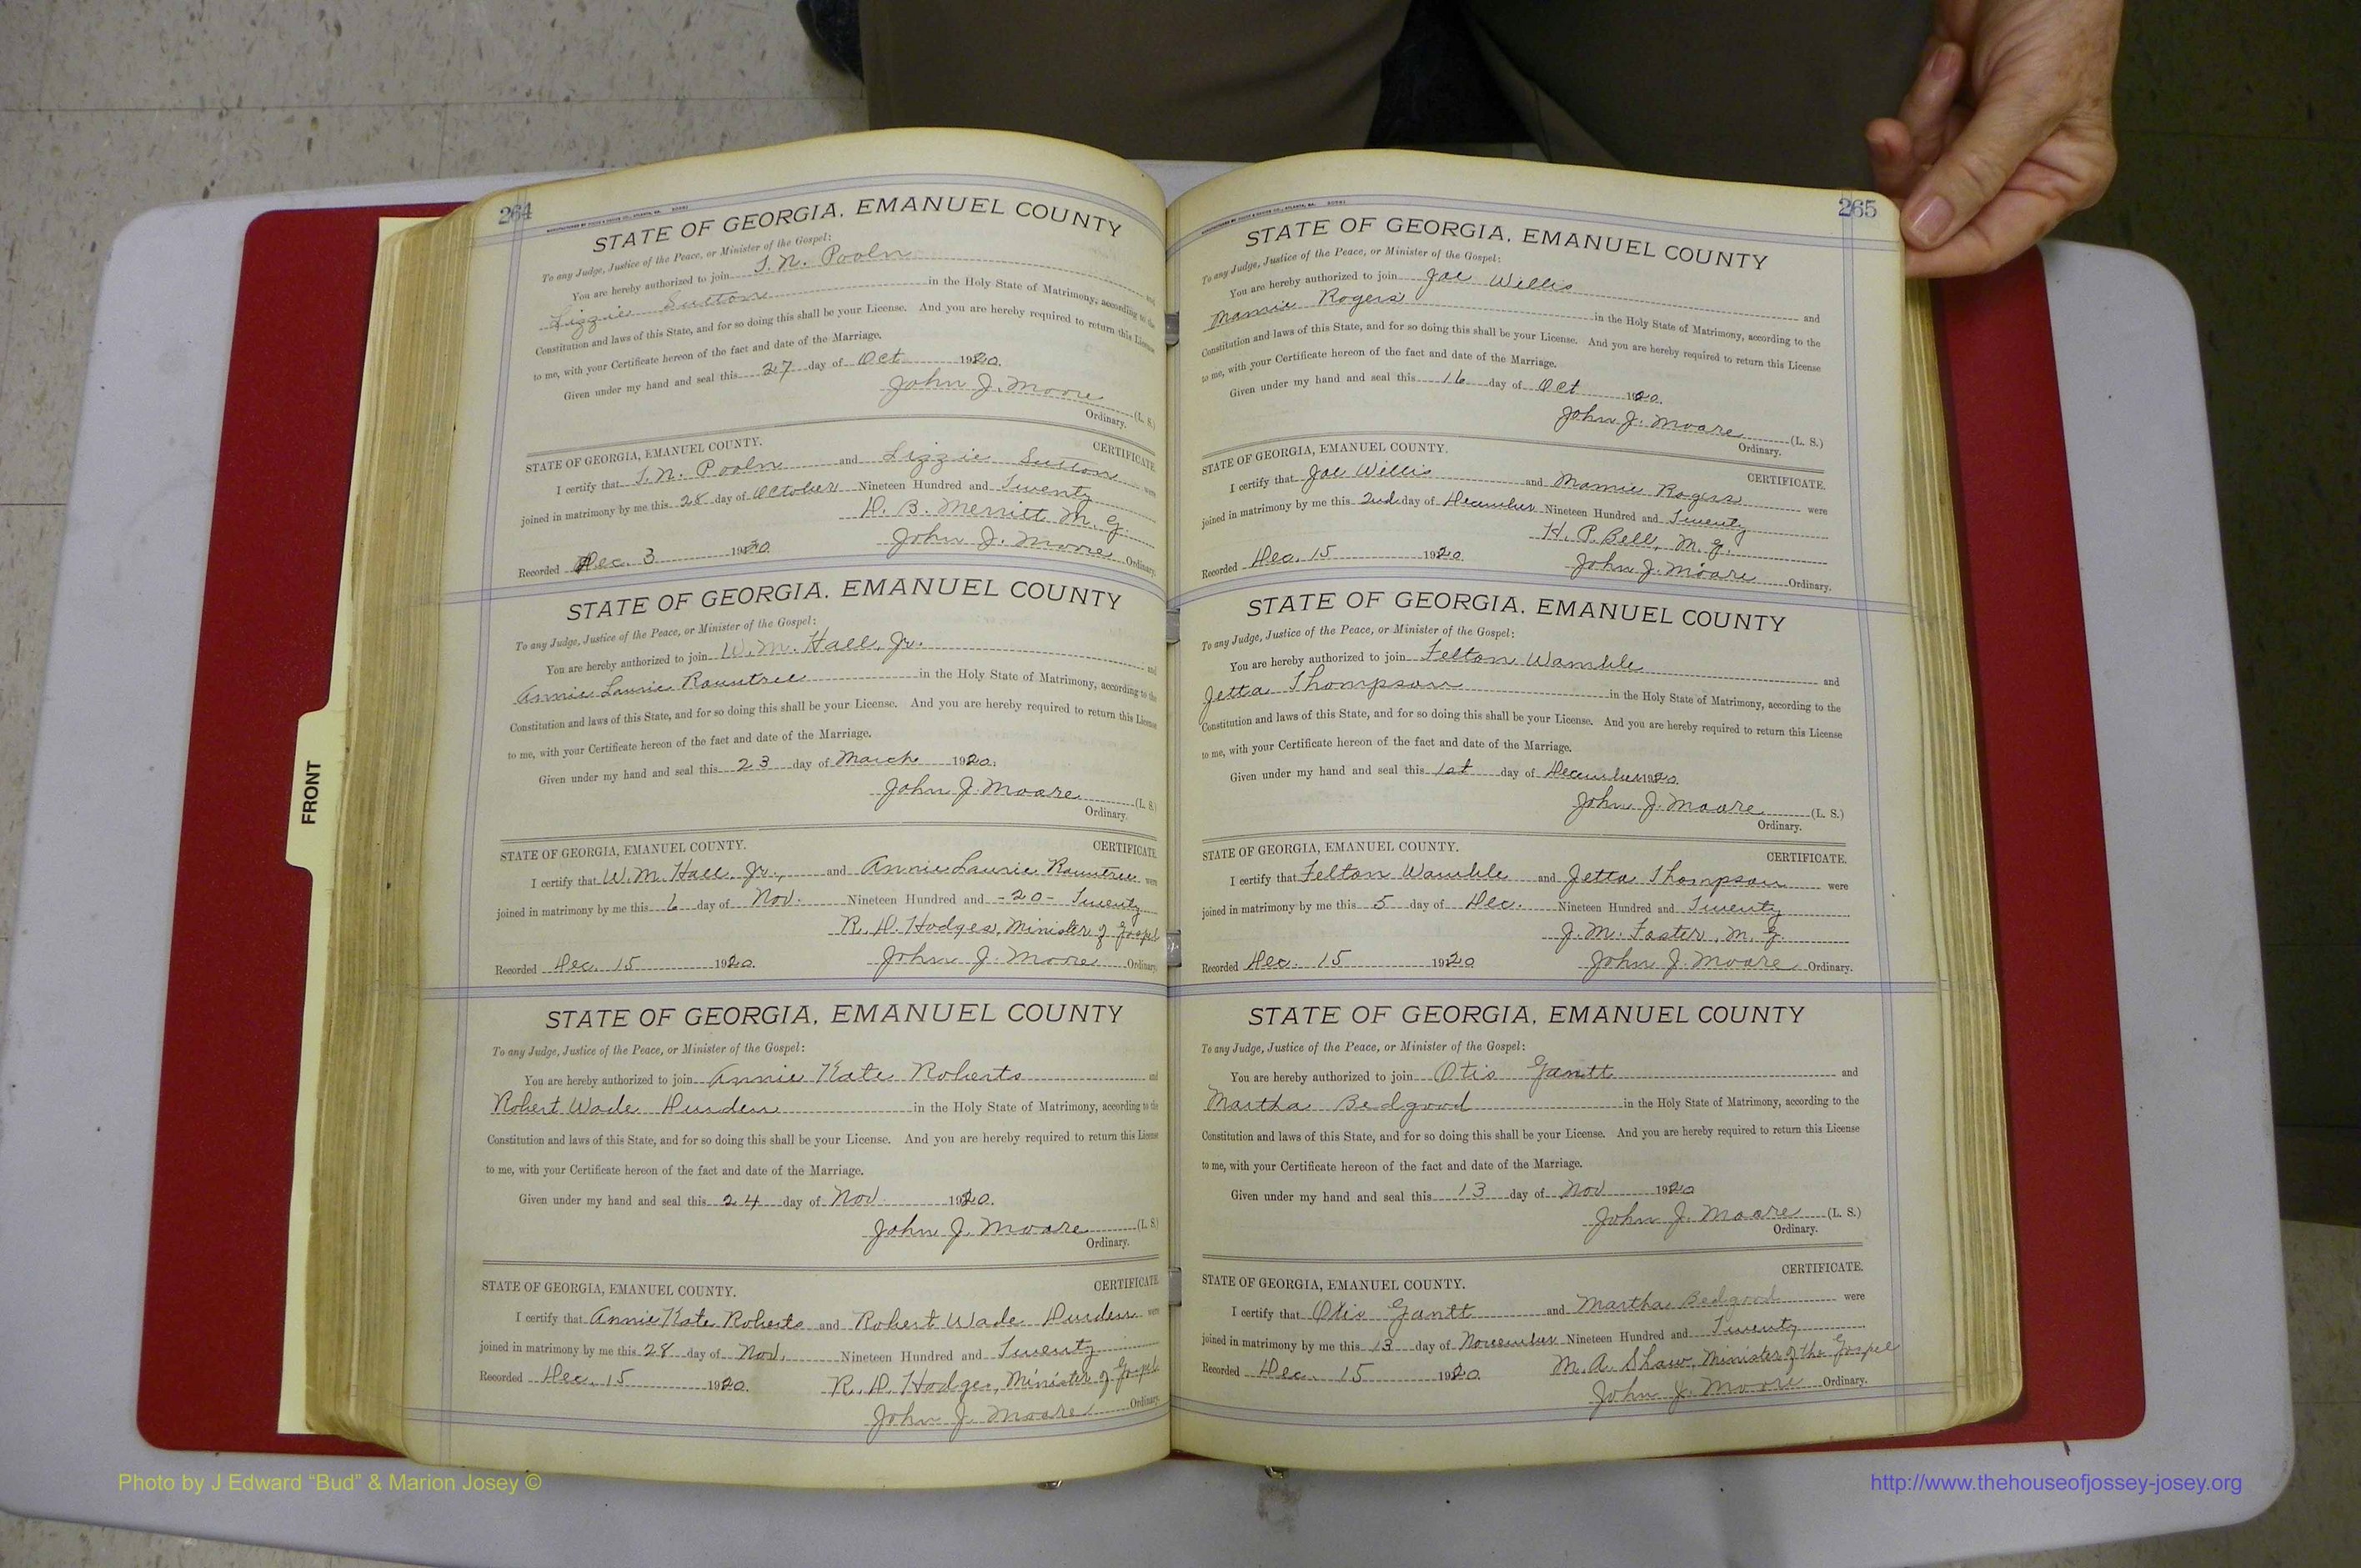 264
STATE OF GEORGIA, EMANUEL COUNTY
To any Judge, Justice of the Peace, or Minister of the Gospel:
You are hereby authorized to join and
Lizzie Sutton in the Holy State of Matrimony, according to the
Constitution and laws of this State, and for so doing this shall be your License. And you are hereby required to return this License
to me, with your Certificate hereon of the fact and date of the Marriage.
Given under my hand and seal this 27 day of Oct 1920.
John J. Moore (L. S.)
Ordinary.
STATE OF GEORGIA, EMANUEL COUNTY. CERTIFICATE.
I certify that and Lizzie Sutton were
joined in matrimony by me this 28 day of October Nineteen Hundred and Twenty
D. B. Merritt M. G.
Recorded Dec. 3 1920 John J. Moore Ordinary.
STATE OF GEORGIA, EMANUEL COUNTY
To any Judge, Justice of the Peace, or Minister of the Gospel:
You are hereby authorized to join W. M. Hall, Jr. and
Annie Laurie Rountree in the Holy State of Matrimony, according to the
Constitution and laws of this State, and for so doing this shall be your License. And you are hereby required to return this License
to me, with your Certificate hereon of the fact and date of the Marriage.
Given under my hand and seal this 23 day of March 1920.
John J. Moore (L. S.)
Ordinary.
STATE OF GEORGIA, EMANUEL COUNTY. CERTIFICATE
I certify that W. M. Hall, Jr., and Annie Laurie Rountree were
joined in matrimony by me this 6 day of Nov. Nineteen Hundred and -20- Twenty
R. D. Hodges, Minister of Gospel
Recorded Dec. 15 1920. John J. Moore Ordinary
STATE OF GEORGIA, EMANUEL COUNTY
To any Judge, Justice of the Peace, or Minister of the Gospel:
You are hereby authorized to join Annie Kate Roberts and
Robert Wade Durden in the Holy State of Matrimony, according to the
Constitution and laws of this State, and for so doing this shall be your License. And you are hereby required to return this License
to me, with your Certificate hereon of the fact and date of the Marriage.
Given under my hand and seal this 24 day of Nov 1920.
John J. Moore (L. S.)
Ordinary.
STATE OF GEORGIA, EMANUEL COUNTY. CERTIFICATE
I certify that Annie Kate Roberts and Robert Wade Durden were
joined in matrimony by me this 28 day of Nov. Nineteen Hundred and Twenty
Recorded Dec. 15 1920. R. D. Hodges, Minister of Gospel
John J. Moore Ordinary.
265
STATE OF GEORGIA, EMANUEL COUNTY
To any Judge, Justice of the Peace, or Minister of the Gospel:
You are hereby authorized to join Joe Willis and
Mamie Rogers in the Holy State of Matrimony, according to the
Constitution and laws of this State, and for so doing this shall be your License. And you are hereby required to return this License
to me, with your Certificate hereon of the fact and date of the Marriage.
Given under my hand and seal this 16 day of Oct 1920.
John J. Moore (L. S.)
Ordinary.
STATE OF GEORGIA, EMANUEL COUNTY. CERTIFICATE.
I certify that Joe Willis and Mamie Rogers were
joined in matrimony by me this 2nd day of December Nineteen Hundred and Twenty
H. P. Bell, M. G.
Recorded Dec. 15 1920. John J. Moore Ordinary.
STATE OF GEORGIA, EMANUEL COUNTY
To any Judge, Justice of the Peace, or Minister of the Gospel:
You are hereby authorized to join Felton Wamble and
Jetta Thompson in the Holy State of Matrimony, according to the
Constitution and laws of this State, and for so doing this shall be your License. And you are hereby required to return this License
to me, with your Certificate hereon of the fact and date of the Marriage.
Given under my hand and seal this 1st day of December 1920.
John J. Moore (L. S.)
Ordinary.
STATE OF GEORGIA, EMANUEL COUNTY. CERTIFICATE.
I certify that Felton Wamble and Jetta Thompson were
joined in matrimony by me this 5 day of Dec. Nineteen Hundred and Twenty
J. M. Foster, M. G.
Recorded Dec. 15 1920 John J. Moore Ordinary.
STATE OF GEORGIA, EMANUEL COUNTY
To any Judge, Justice of the Peace, or Minister of the Gospel:
You are hereby authorized to join Otis Gantt and
Martha Bedgood in the Holy State of Matrimony, according to the
Constitution and laws of this State, and for so doing this shall be your License. And you are hereby required to return this License
to me, with your Certificate hereon of the fact and date of the Marriage.
Given under my hand and seal this 13 day of Nov 1920
John J. Moore (L. S.)
Ordinary.
STATE OF GEORGIA, EMANUEL COUNTY. CERTIFICATE.
I certify that Otis Gantt and Martha Bedgood were
joined in matrimony by me this 13 day of November Nineteen Hundred and Twenty
Recorded Dec. 15 1920 M. A. Shaw, Minister of the Gospel
John J. Moore Ordinary.
FRONT
Photo by J Edward “Bud” & Marion Josey ©
http://www.thehouseofjossey-josey.org